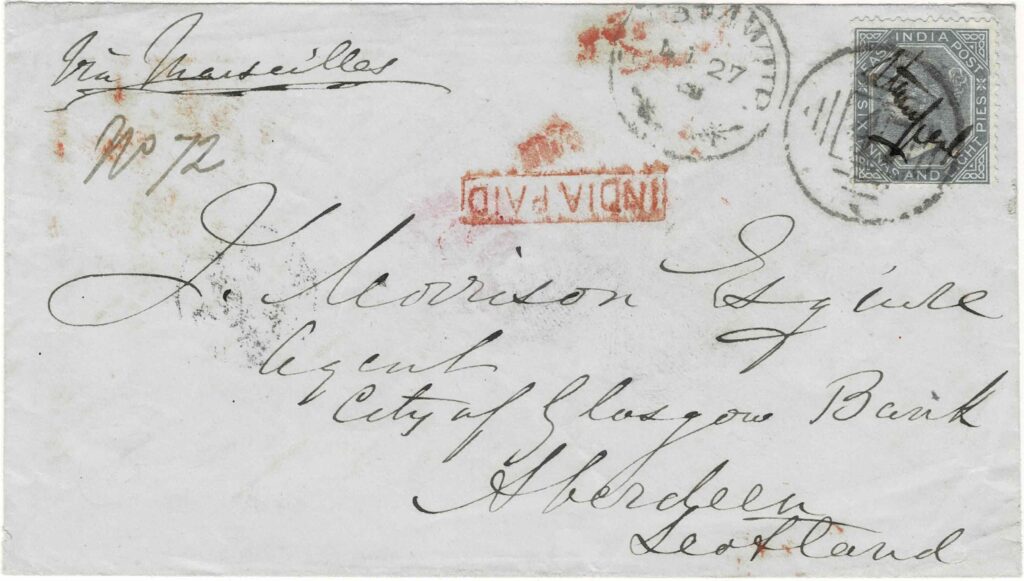 Via Marseilles
No 72
INDIA PAID
27
EAST INDIA POSTAGE
SIX ANNAS AND EIGHT PIES
Stamped
J. Morrison Esquire
Agent
City of Glasgow Bank
Aberdeen
Scotland